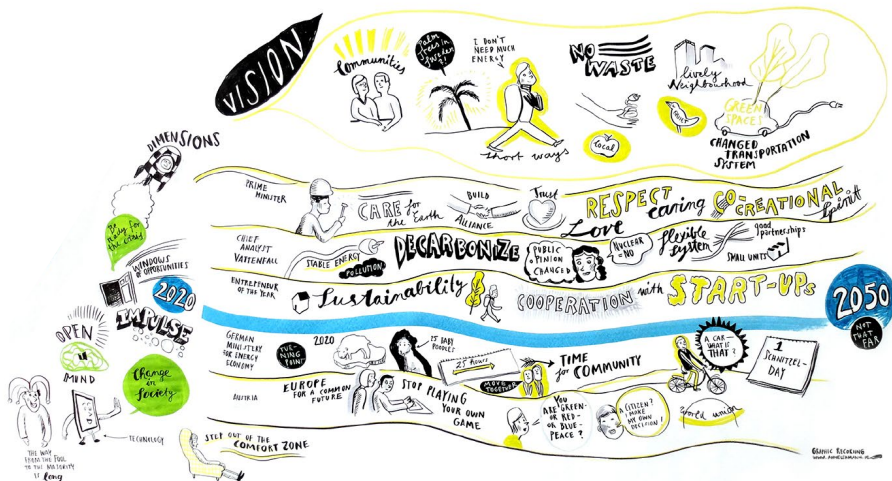 VISION
Communities
Palm
trees in
Sweden
?!
I DON'T
NEED MUCH
ENERGY
short ways
NO
WASTE
Local
lively
Neighbourhood
GREEN
SPACES
CHANGED
TRANSPORTATION
SYSTEM
DIMENSIONS
Be
ready for
the crisis
WINDOWS
OF OPPORTUNITIES
2020
IMPULSE
OPEN
MIND
Change
in
Society
TECHNOLOGY
THE WAY
FROM THE FOOL
TO THE MAJORITY
IS long
STEP OUT OF THE
COMFORT ZONE
PRIME
MINISTER
CARE for
the Earth
BUILD
ALLIANCE
Trust
Love
RESPECT
caring
CO-CREATIONAL
spirit
CHIEF
ANALYST
VATTENFALL
STABLE ENERGY
POLLUTION
DECARBONIZE
PUBLIC
OPINION
CHANGED
NUCLEAR
=NO
flexible
system
good
partnerships
SMALL UNITS
ENTREPRENEUR
OF THE YEAR
Sustainability
COOPERATION with START-UPS
2050
NOT
THAT
FAR
GERMAN
MINISTERY
FOR ENERGY
ECONOMY
TUR-
NING
POINT
2020
25 BABY
POODLES
25 hours
MOVE
TOGETHER
TIME
for COMMUNITY
A CAR-
WHAT IS
THAT?
1
SCHNITZEL-
DAY
AUSTRIA
EUROPE
FOR A COMMON
FUTURE
STOP PLAYING
YOUR OWN
GAME
YOU
ARE GREEN-
OR RED-
OR BLUE-
PEACE?
A CITIZEN?
I MAKE
MY OWN
DECISION!
World union
GRAPHIC RECORDING